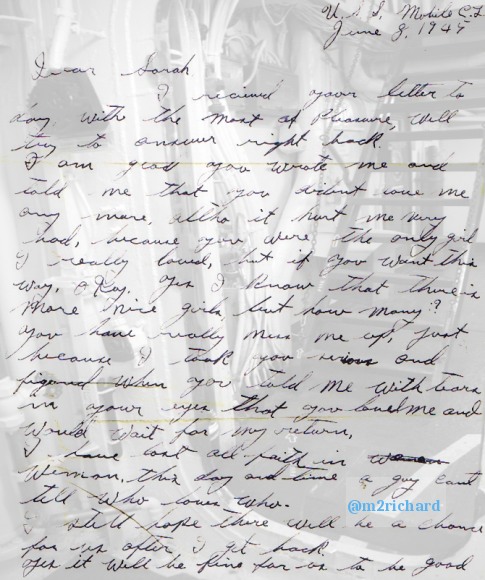 U.S.S. Mobile C.L.
June 8, 1945
Dear Sarah
I recieved your letter to
day with the most of Pleasure, Will
try to answer right back.
I am glad you wrote me and
told me that you didnt love me
any more, altho it hurt me very
bad, because you were the only girl
I really loved, but if you want this
way, O.Kay. Yes I know that there is
more nice girls, but how many?
You have really mess me up, just
because I took you serious and
figured when you told me with tears
in your eyes that you loved me and
would wait for my return.
I have lost all faith in
Woman, this day and time a guy cant
tell who loves who.
@m2richard
I still hope there will be a chance
for us after I get back.
Yes it will be fine for us to be good